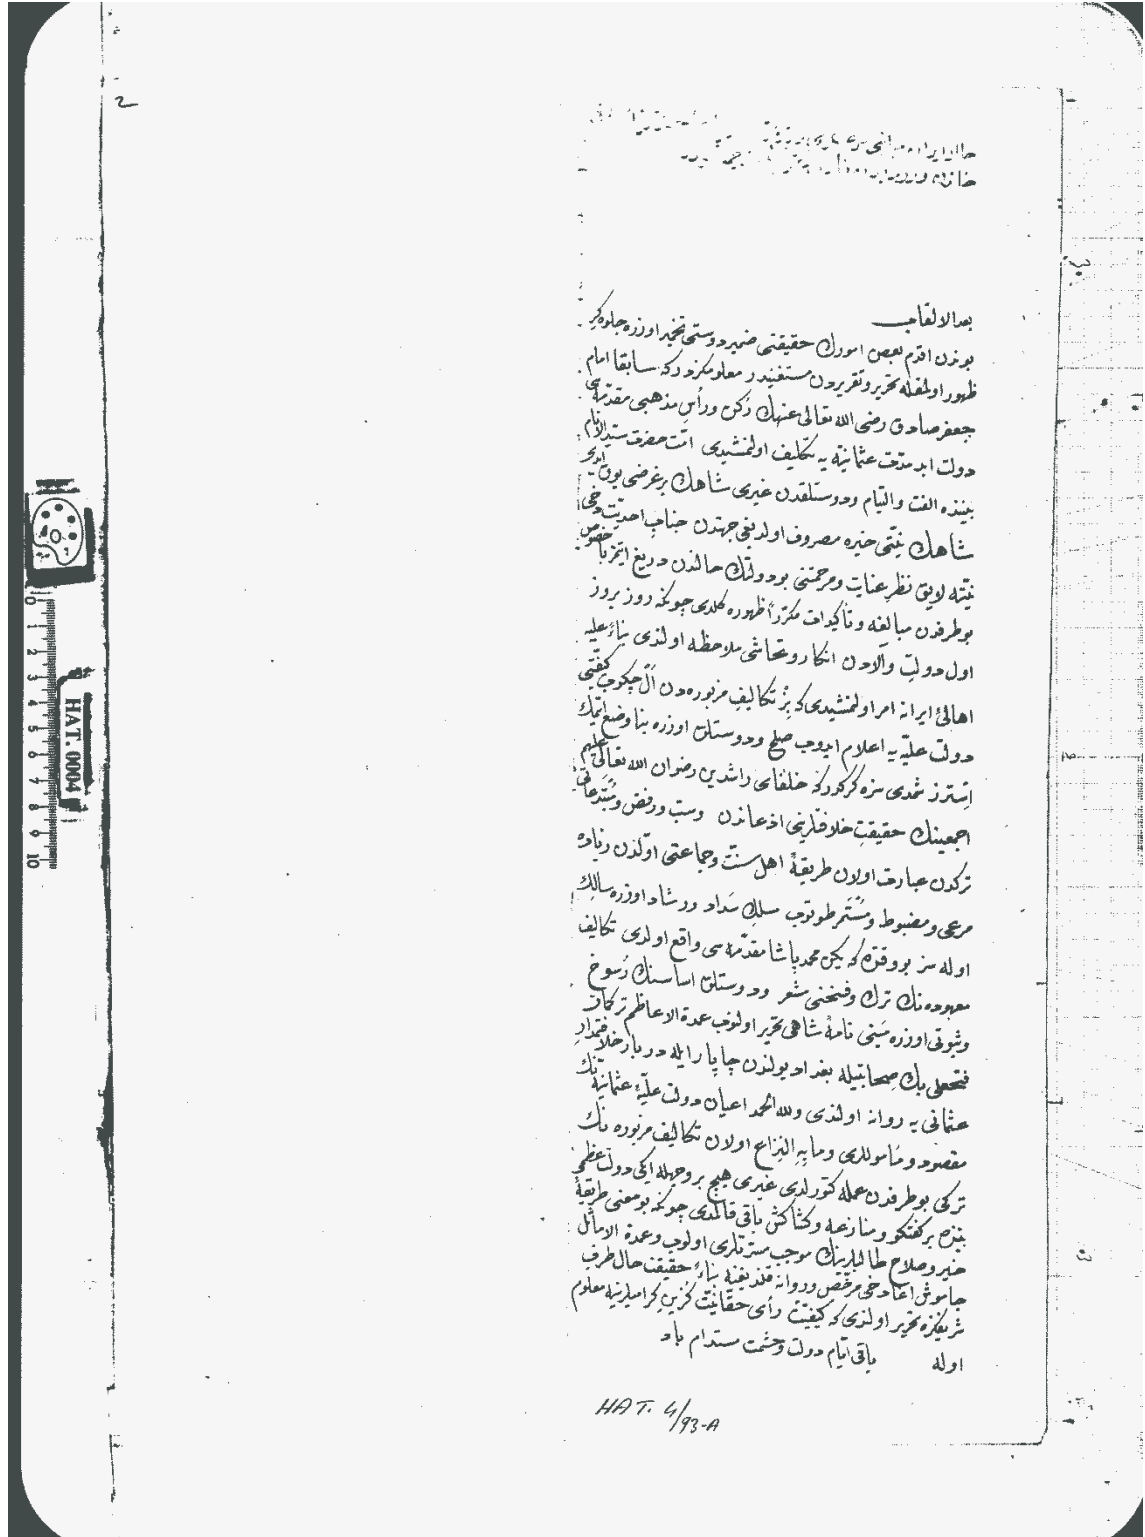 2
حالا ایران
خانك
بعد الالقاب
بوندن اقدم بعض امورك حقیقتی ضمیر دوستی تخمیر اوزره جلوه‌گر
ظهور اولمغله تحریر و تقریردن مستغنیدر معلومكزدركه سابقا امام
جعفر صادق رضی الله تعالی عنهك ركن و رأس مذهبی مقدمه‌سی
دولت ابد مدت عثمانیه یه تكلیف اولنمشیدی امت حضرت سید الانام
بیننده الفت والتیام و دوستلقدن غیری شاهك بر غرضی یوق ایدی
شاهك نیتی خیره مصروف اولدیغی جهتدن جناب احدیت دخی
نیته لایق نظر عنایت و مرحمتنی بو دولتك حالندن دریغ ایتمز باخصوص
بو طرفدن مبالغه و تأكیدات مكررا ظهوره كلدی چونكه روز بروز
اول دولت والادن انكار و تحاشی ملاحظه اولندی بناء علیه
اهالئ ایرانه امر اولنمشیدی كه بز تكالیف مزبوره دن ال چكوب كیفیتی
دولت علیه یه اعلام ایدوب صلح و دوستلق اوزره بنا وضع ایتمك
استرز شمدی سزه كركدركه خلفای راشدین رضوان الله تعالی علیهم
اجمعینك حقیقت خلافتلرینی اذعاندن وسب و رفض و مبتدعاتی
تركدن عبارت اولان طریقهٔ اهل سنت وجماعتی اولدن زیاده
مرعی و مضبوط و مستمر طوتوب مسلك سداد و رشاد اوزره سالك
اوله سز بو وقتده كه یكن محمد پاشا مقدمه سی واقع اولدی تكالیف
معهوده نك ترك وفسخنی مشعر و دوستلق اساسنك رسوخ
وثبوتی اوزره مبنی نامهٔ شاهی تحریر اولنوب عمدة الاعاظم تركمان
فتحعلی بك صحابتیله بغداد یولندن چاپار ایله دربار خلافتمدار
عثمانی یه روانه اولندی ولله الحمد اعیان دولت علیهٔ عثمانیه نك
مقصود و مأموللری و ما به النزاع اولان تكالیف مزبوره نك
تركی بو طرفدن عمله كتورلدی غیری هیچ بر وجهله ایكی دولت عظمی
بیننده بر كفتكو و منازعه و كشاكش باقی قالمدی چونكه بو معنی طریقهٔ
خیر و صلاح طالبلرینك موجب مسرتلری اولوب و عمدة الاماثل
جاموش اغا دخی مرخص و روانه قلندیغنه بناء حقیقت حال طرف
شریفكزه تحریر اولندی كه كیفیت رأی حقانیت كزین كرامیلرینه معلوم
اوله باقی ایام دولت و حشمت مستدام باد
HAT. 4/93-A
HAT. 0004
0 1 2 3 4 5 6 7 8 9 10